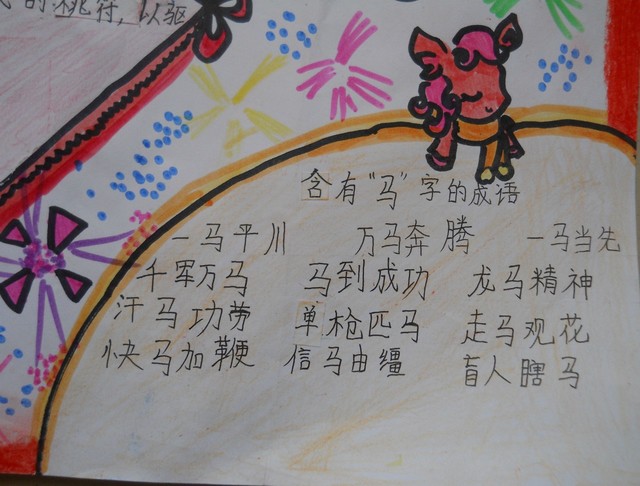 的桃符，以驱
含有“马”字的成语
一马平川 万马奔腾 一马当先
千军万马 马到成功 龙马精神
汗马功劳 单枪匹马 走马观花
快马加鞭 信马由缰 盲人瞎马